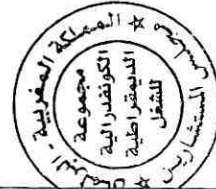 المملكة المغربية -
مجلس المستشارين
مجموعة
الكونفدرالية
الديمقراطية
للشغل